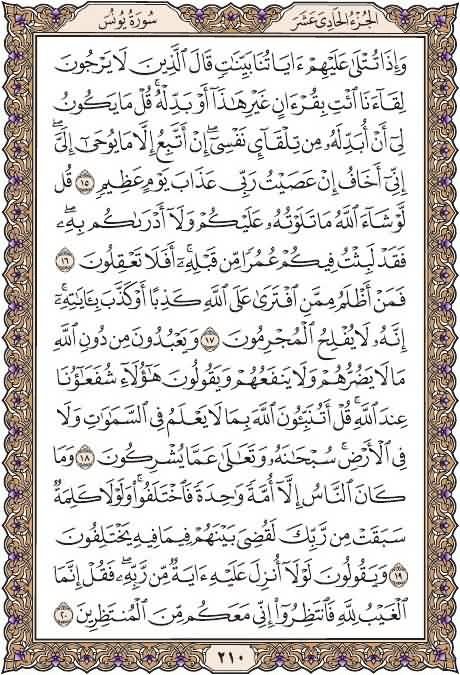 الجُزْءُ الحَادِي عَشَرَ سُورَةُ يُونُسَ
وَإِذَا تُتْلَىٰ عَلَيْهِمْ ءَايَاتُنَا بَيِّنَٰتٖ قَالَ ٱلَّذِينَ لَا يَرْجُونَ
لِقَآءَنَا ٱئْتِ بِقُرْءَانٍ غَيْرِ هَٰذَآ أَوْ بَدِّلْهُۚ قُلْ مَا يَكُونُ
لِيٓ أَنْ أُبَدِّلَهُۥ مِن تِلْقَآيِٕ نَفْسِيٓۖ إِنْ أَتَّبِعُ إِلَّا مَا يُوحَىٰٓ إِلَيَّۖ
إِنِّيٓ أَخَافُ إِنْ عَصَيْتُ رَبِّي عَذَابَ يَوْمٍ عَظِيمٖ ١٥ قُل
لَّوْ شَآءَ ٱللَّهُ مَا تَلَوْتُهُۥ عَلَيْكُمْ وَلَآ أَدْرَىٰكُم بِهِۦۖ
فَقَدْ لَبِثْتُ فِيكُمْ عُمُرٗا مِّن قَبْلِهِۦٓۚ أَفَلَا تَعْقِلُونَ ١٦
فَمَنْ أَظْلَمُ مِمَّنِ ٱفْتَرَىٰ عَلَى ٱللَّهِ كَذِبًا أَوْ كَذَّبَ بِـَٔايَٰتِهِۦٓۚ
إِنَّهُۥ لَا يُفْلِحُ ٱلْمُجْرِمُونَ ١٧ وَيَعْبُدُونَ مِن دُونِ ٱللَّهِ
مَا لَا يَضُرُّهُمْ وَلَا يَنفَعُهُمْ وَيَقُولُونَ هَٰٓؤُلَآءِ شُفَعَٰٓؤُنَا
عِندَ ٱللَّهِۚ قُلْ أَتُنَبِّـُٔونَ ٱللَّهَ بِمَا لَا يَعْلَمُ فِي ٱلسَّمَٰوَٰتِ وَلَا
فِي ٱلْأَرْضِۚ سُبْحَٰنَهُۥ وَتَعَٰلَىٰ عَمَّا يُشْرِكُونَ ١٨ وَمَا
كَانَ ٱلنَّاسُ إِلَّآ أُمَّةٗ وَٰحِدَةٗ فَٱخْتَلَفُواْۚ وَلَوْلَا كَلِمَةٞ
سَبَقَتْ مِن رَّبِّكَ لَقُضِيَ بَيْنَهُمْ فِيمَا فِيهِ يَخْتَلِفُونَ
١٩ وَيَقُولُونَ لَوْلَآ أُنزِلَ عَلَيْهِ ءَايَةٞ مِّن رَّبِّهِۦۖ فَقُلْ إِنَّمَا
ٱلْغَيْبُ لِلَّهِ فَٱنتَظِرُوٓاْ إِنِّي مَعَكُم مِّنَ ٱلْمُنتَظِرِينَ ٢٠
٢١٠